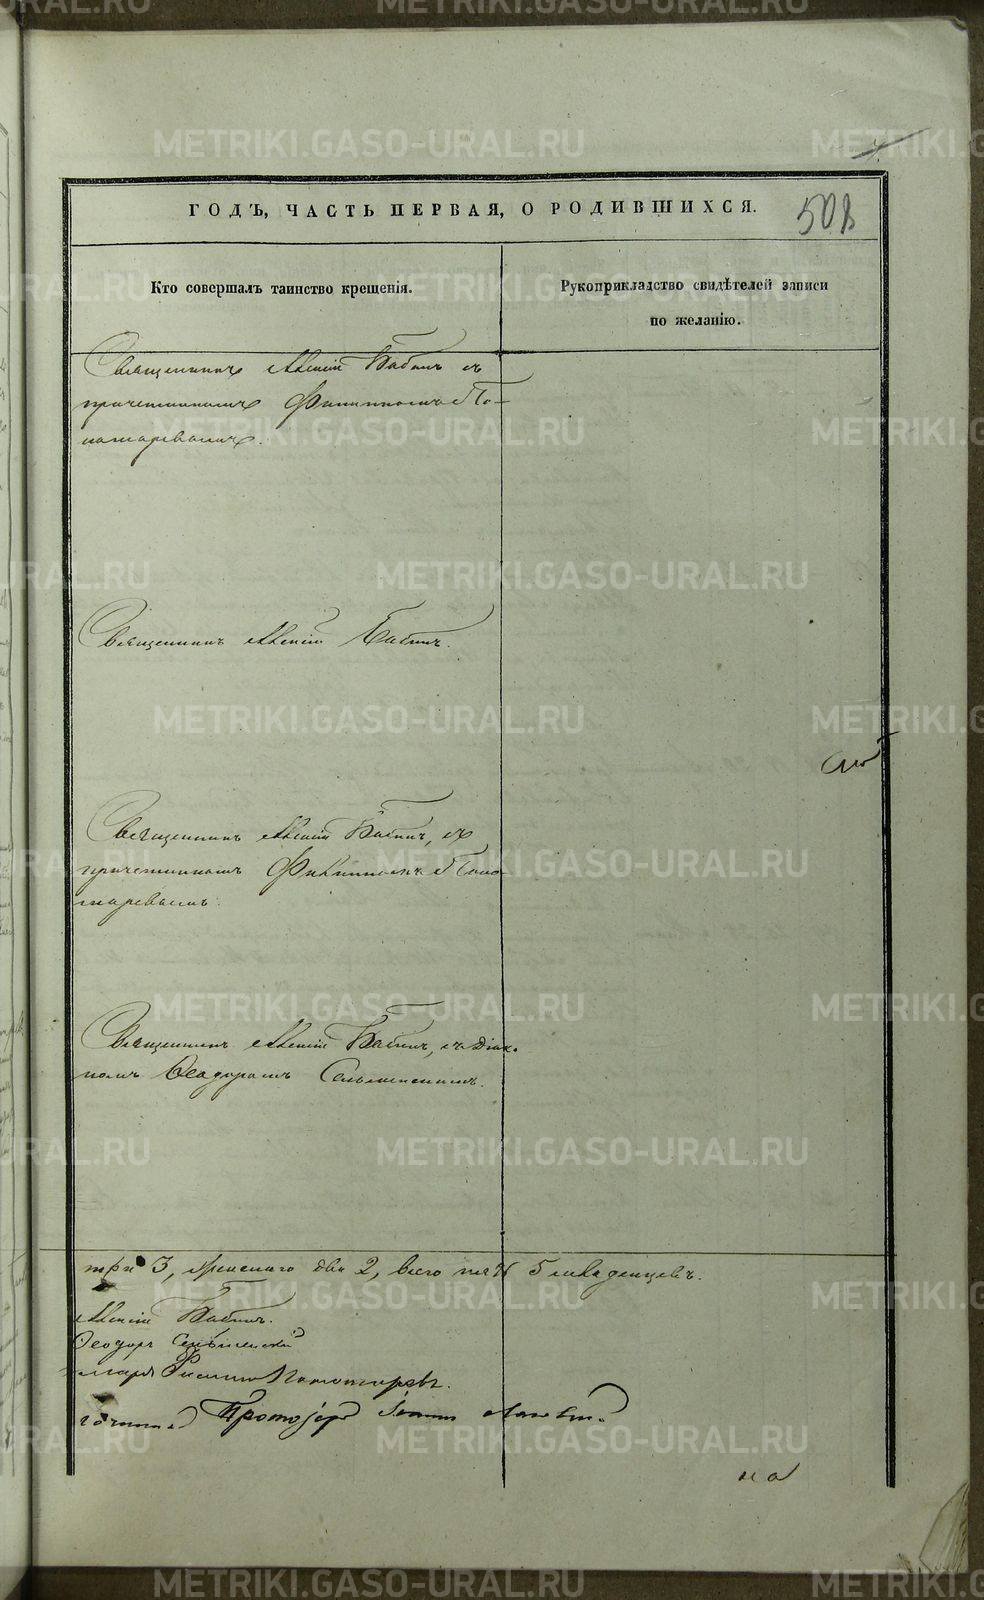 ГОДЪ, ЧАСТЬ ПЕРВАЯ, О РОДИВШИХСЯ.
508
Кто совершалъ таинство крещенія.
Рукоприкладство свидѣтелей записи
по желанію.
Священникъ Алексій Бабинъ съ
причетникомъ Филиппомъ По-
номаревымъ.
Священникъ Алексій Бабинъ.
Священникъ Алексій Бабинъ, съ
причетникомъ Филиппомъ Поно
маревымъ.
Священникъ Алексій Бабинъ, съ діако
номъ Ѳеодоромъ
три 3, женскаго два 2, всего пять 5 младенцевъ.
Алексій Бабинъ.
Ѳеодоръ
Филиппъ Пономаревъ.
Протоіерей Іоаннъ
METRIKI.GASO-URAL.RU